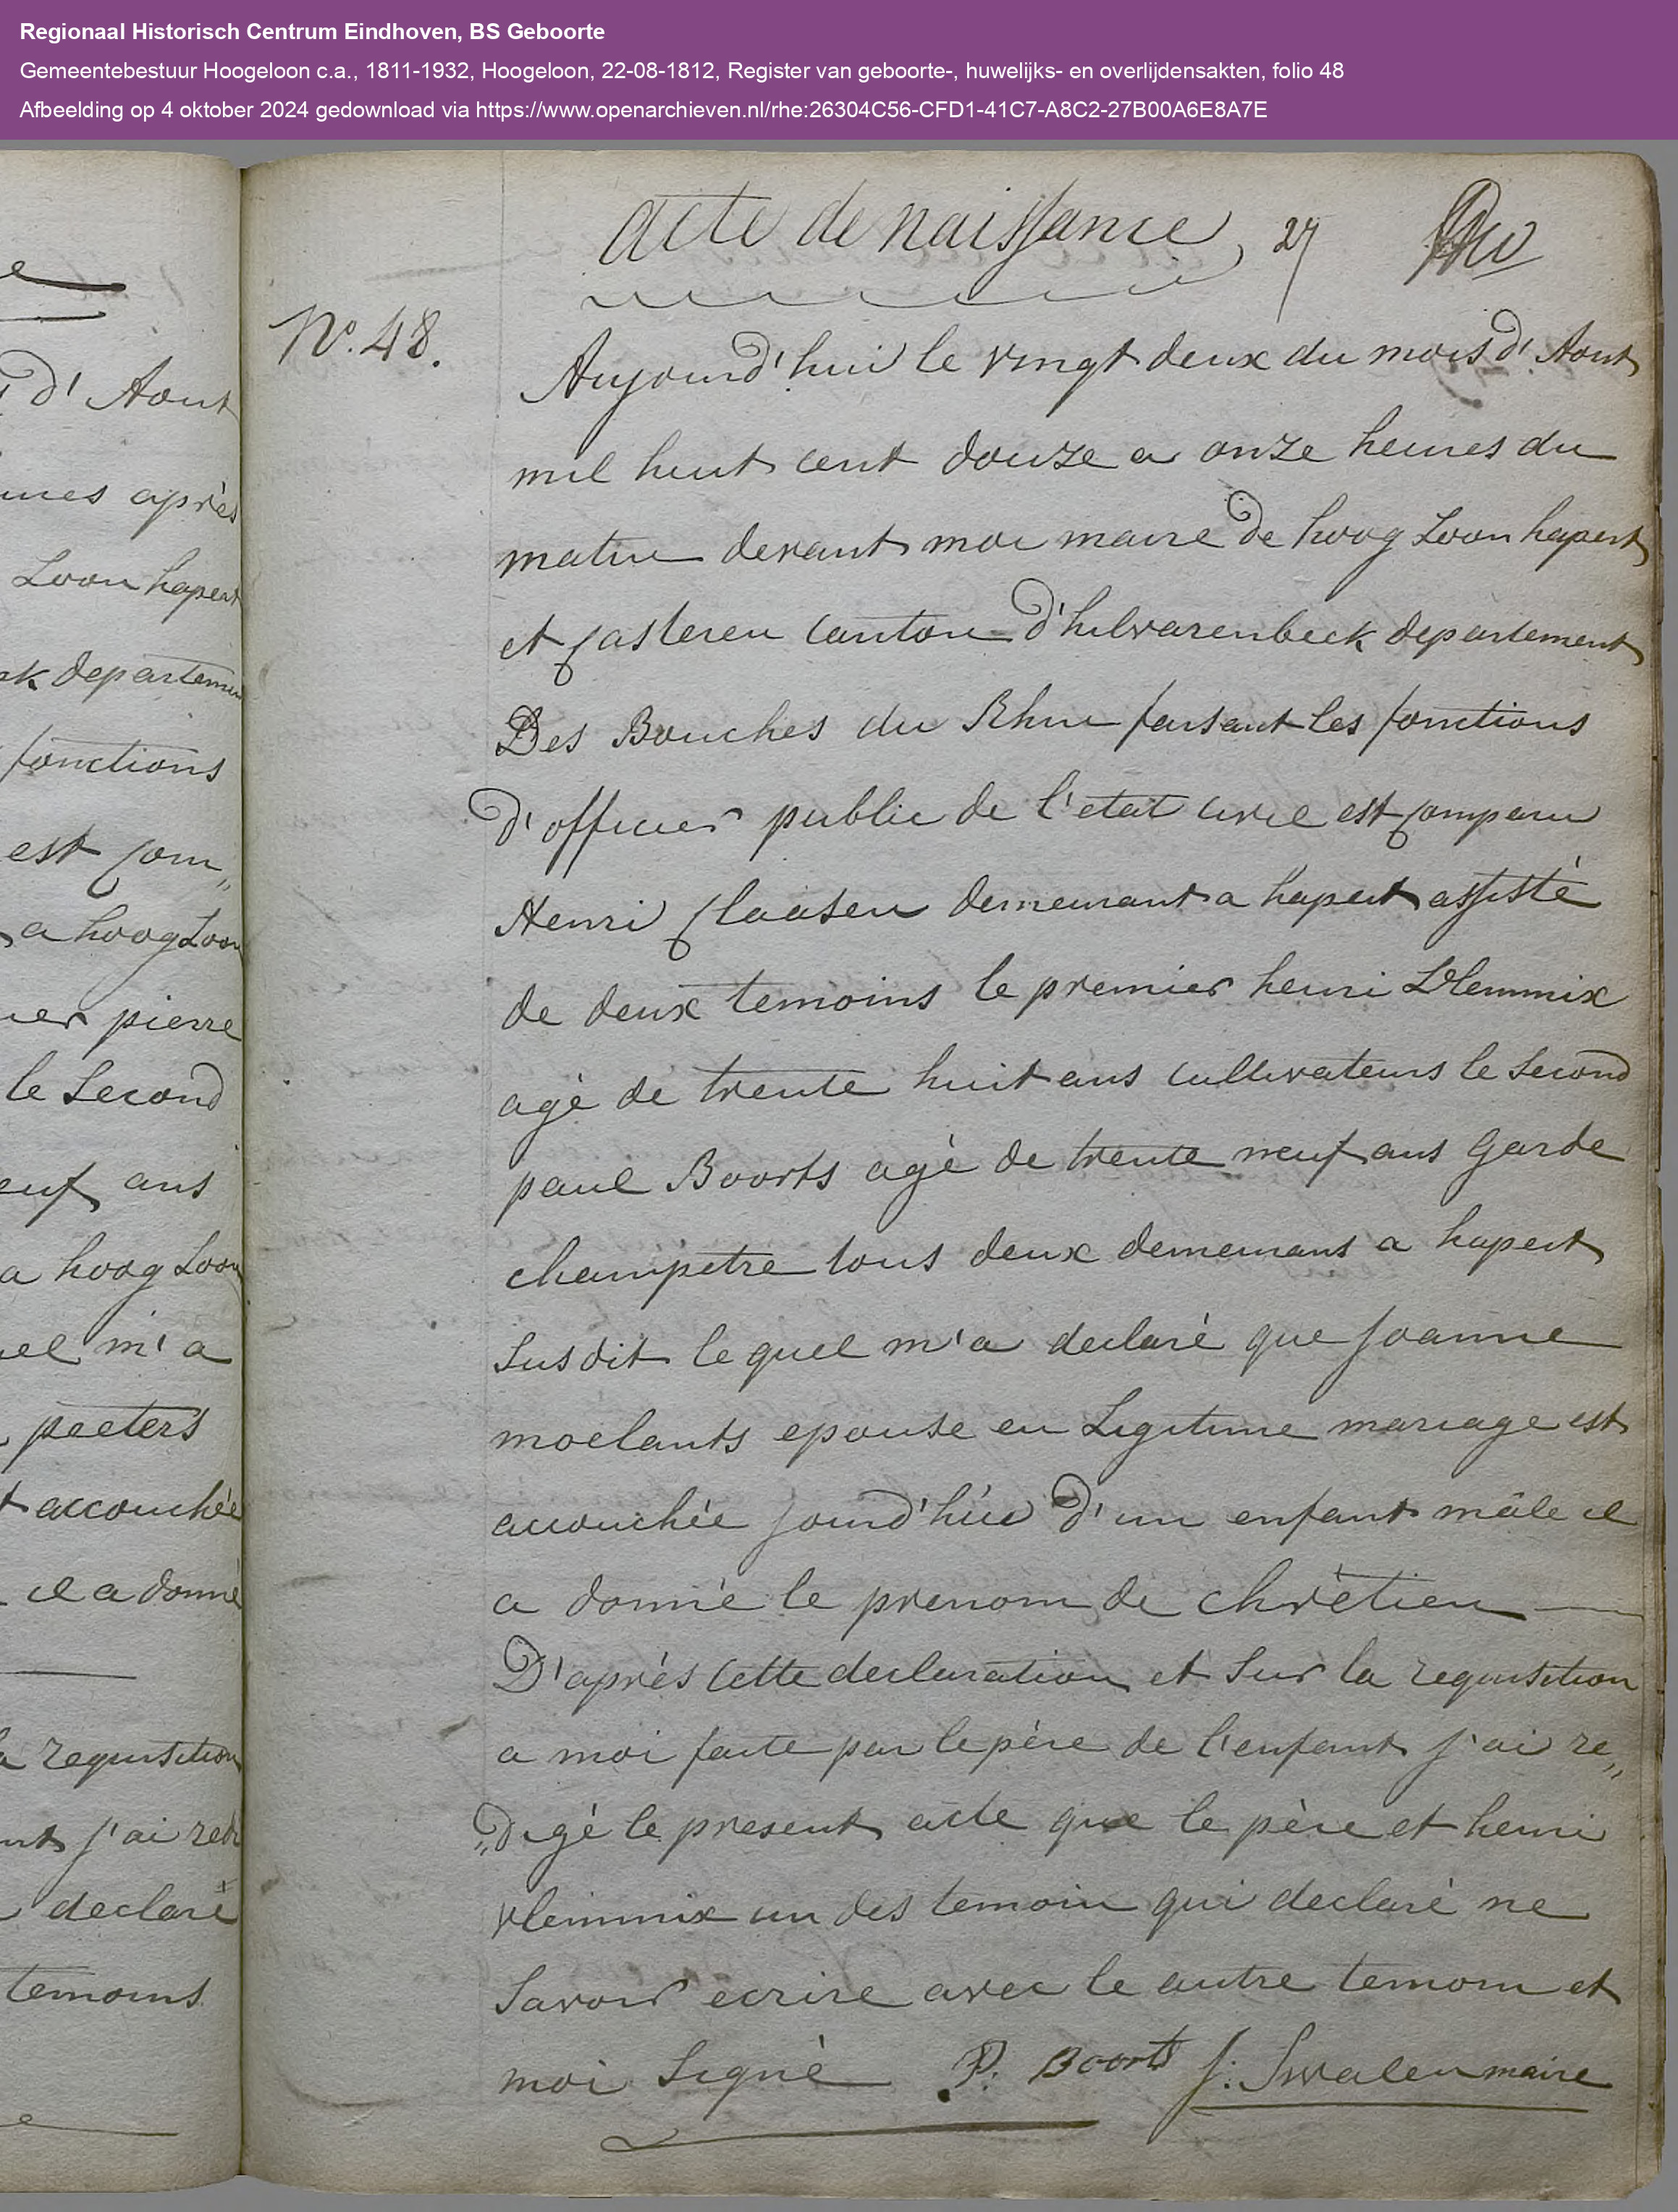 Regionaal Historisch Centrum Eindhoven, BS Geboorte
Gemeentebestuur Hoogeloon c.a., 1811-1932, Hoogeloon, 22-08-1812, Register van geboorte-, huwelijks- en overlijdensakten, folio 48
Afbeelding op 4 oktober 2024 gedownload via https://www.openarchieven.nl/rhe:26304C56-CFD1-41C7-A8C2-27B00A6E8A7E
d' Aout
après
Loon hapert
departemen
fonctions
est com„
a hoog Loon
pierre
le Second
ans
a hoog Loon
m'a
peeters
accouchée
il a donné
requisition
j'ai redi
declaré
temoins
acte de naissance 27
No. 48.
Aujourd'hui le vingt deux du mois d'Aout
mil huit cent douze a onze heures du
matin devant moi maire de hoog Loon hapert
et Casteren Canton d'hilvarenbeek departement
Des Bouches du Rhin faisant les fonctions
d'officier public de l'etat civil est comparu
Henri Claasen demeurant a hapert assisté
de deux temoins le premier henri Vlemmix
agé de trente huit ans cultivateurs le Second
paul Boorts agé de trente neuf ans Garde
champetre tous deux demeurans a hapert
Susdit lequel m'a declaré que Joanne
moelants epouse en Legitime mariage est
accouchée jourd'húi d'un enfant mâle il
a donné le prenom de chrètien
D'aprés cette declaration et Sur la requisition
a moi faite par le père de l'enfant j'ai re„
„digé le present acte que le père et henri
vlemmix un des temoin qui declaré ne
Savoir ecrire avec le autre temoin et
moi Signé P. Boorts J: Swalen maire